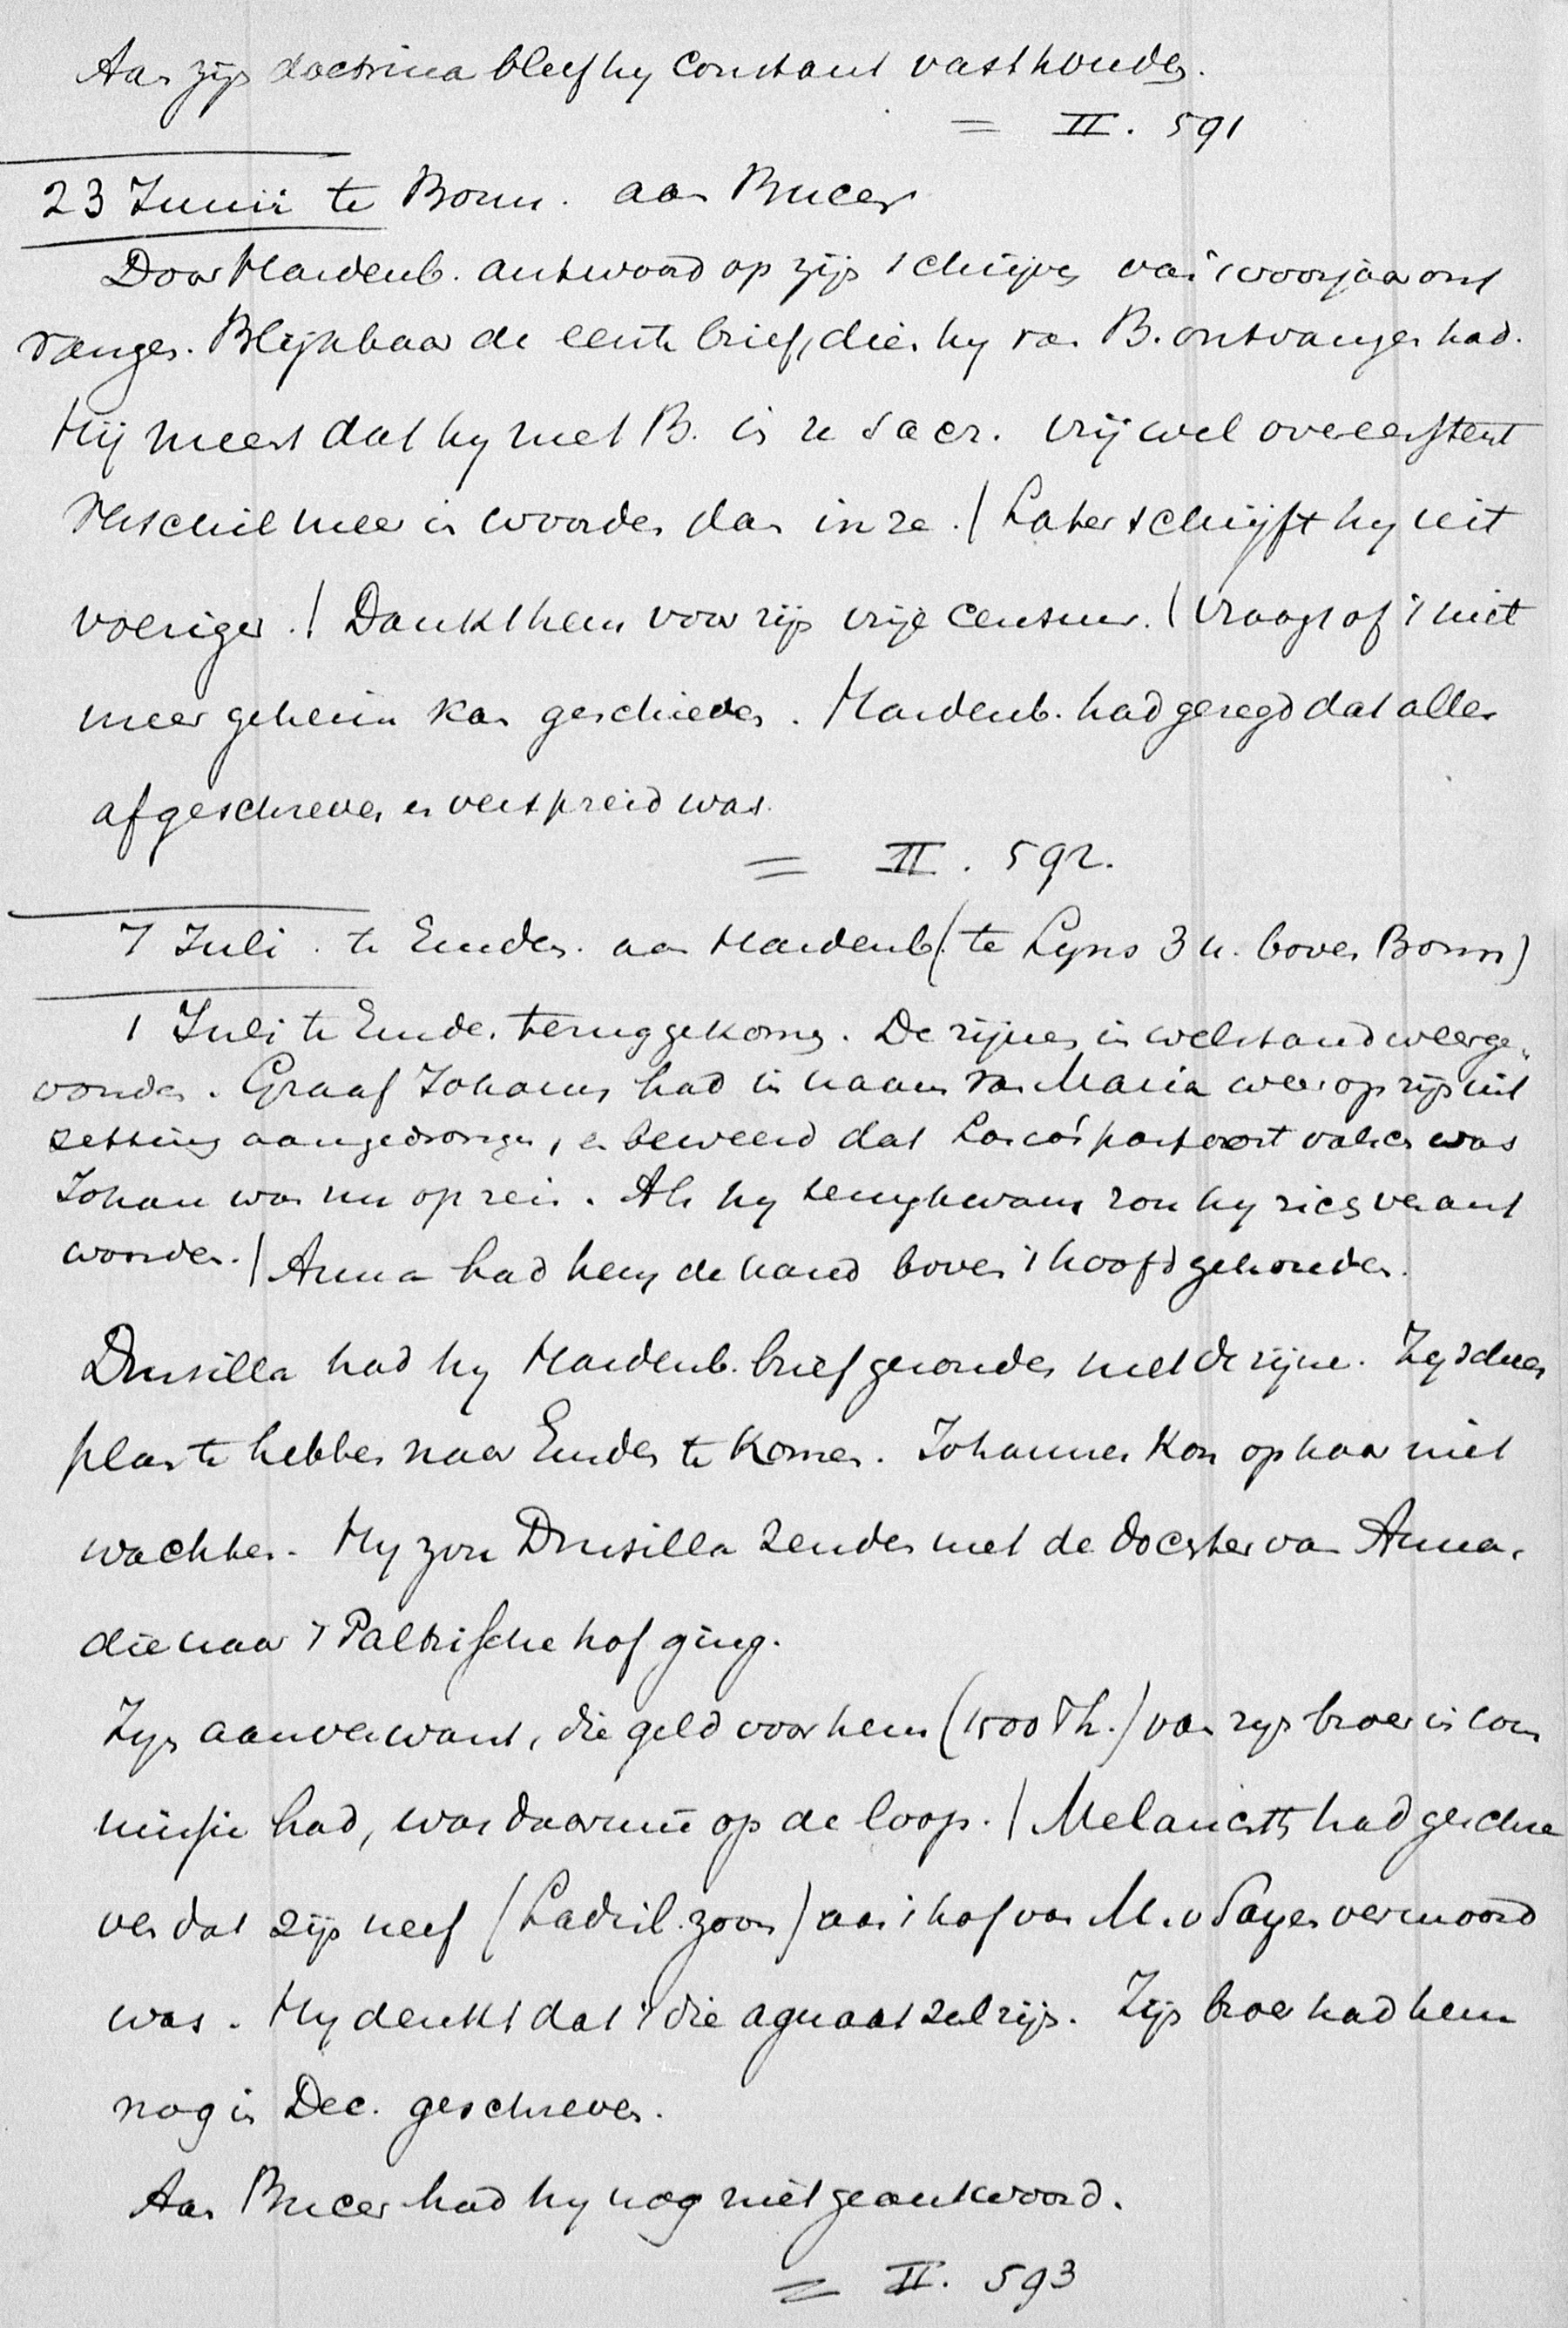 Aan zijn doctrina bleef hy constant vasthouden.
= II. 591
23 Junii te Bonn. aan Bucer
Door Hardenb. antwoord op zijn schrijven van 't voorjaar ont
vangen. Blijkbaar de eerste brief, dien hy van B. ontvangen had.
Hij meent dat hy met B. in re sacr. vrij wel overeenstemt
Verschil meer in woorden dan in re. / Later schrijft hy uit
voeriger. / Dankt hem voor zijn vrije censuur. / Vraagt of 't niet
meer geheim kan geschieden. Hardenb. had gezegd dat alles
afgeschreven en verspreid was.
= II. 592.
7 Juli. te Emden. aan Hardenb. (te Lyns 3 u. boven Bonn)
1 Juli te Emden teruggekomen. De zijnen in welstand weerge-
vonden. Graaf Johann had in naam van Maria weer op zijn uit
zetting aangedrongen, en beweerd dat Lasco's paspoort valsch was
Johan was nu op reis. Als hy terugkwam zou hy zich verant
woorden. / Anna had hem de hand boven 't hoofd gehouden.
Drusilla had hy Hardenb. brief gezonden met de zijne. Zy scheen
plan te hebben naar Emden te komen. Johannes kon op haar niet
wachten. Hy zou Drusilla zenden met de dochter van Anna,
die naar 't Paltzische hof ging.
Zyn aanverwant, die geld voor hem (1500 Th.) van zyn broer in com
missie had, was daarmeê op de loop. / Melanchth had geschre
ven dat zijn neef (Ladisl. zoon) aan 't hof van M. v Sagen vermoord
was. Hy denkt dat 't die agnaat zal zijn. Zijn broer had hem
nog in Dec. geschreven.
Aan Bucer had hy nog niet geantwoord.
= II. 593